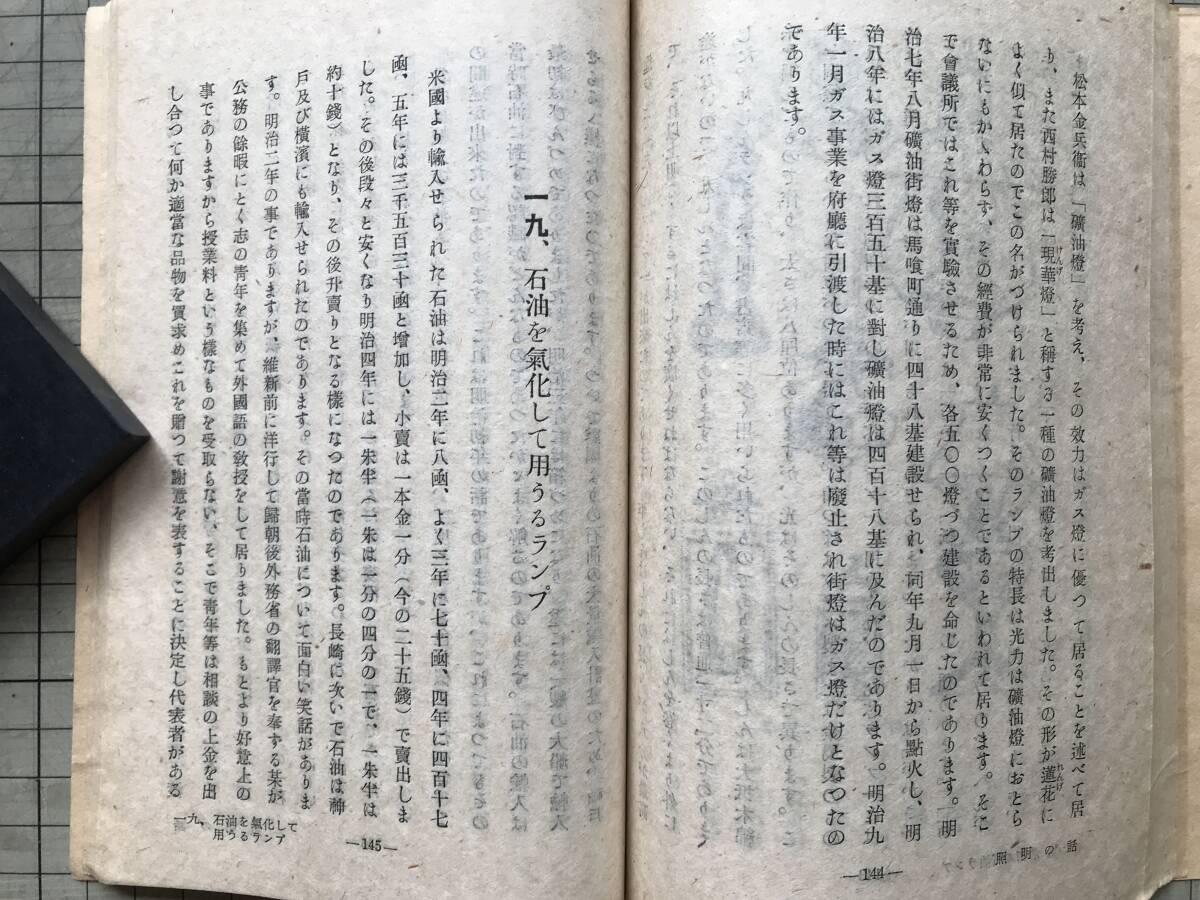 松本金兵衞は「礦油燈」を考え、その效力はガス燈に優つて居ることを述べて居
り、また西村勝郎は「現華燈」と稱する一種の礦油燈を考出しました。その形が蓮花に
げんげ
れんげ
よく似て居たのでこの名がつけられました。そのランプの特長は光力は礦油燈におとら
ないにもかゝわらず、その經費が非常に安くつくことであるといわれて居ります。そこ
で會議所ではこれ等を實驗させるため、各五〇〇燈づつ建設を命じたのであります。明
治七年八月礦油街燈は馬喰町通りに四十八基建設せられ、同年九月一日から點火し、明
治八年にはガス燈三百五十基に對し礦油燈は四百十八基に及んだのであります。明治九
年一月ガス事業を府廳に引渡した時にはこれ等は廢止され街燈はガス燈だけとなつたの
であります。
照明の話
—144—
一九、石油を氣化して用うるランプ
米國より輸入せられた石油は明治二年に八凾、よく三年に七十凾、四年に四百十七
凾、五年には三千五百三十凾と增加し、小賣は一本金一分（今の二十五錢）で賣出しま
した。その後段々と安くなり明治四年には一朱半（一朱は一分の四分の一で、一朱半は
約十錢）となり、その後升賣りとなる樣になつたのであります。長崎に次いで石油は神
戸及び横濱にも輸入せられたのであります。その當時石油について面白い笑話がありま
す。明治二年の事でありますが、維新前に洋行して歸朝後外務省の翻譯官を奉する某が
公務の餘暇にとく志の青年を集めて外國語の敎授をして居りました。もとより好意上の
事でありますから授業料という樣なものを受取らない、そこで青年等は相談の上金を出
し合つて何か適當な品物を買求めこれを贈つて謝意を表することに決定し代表者がある
一九、石油を氣化して
用うるランプ
—145—